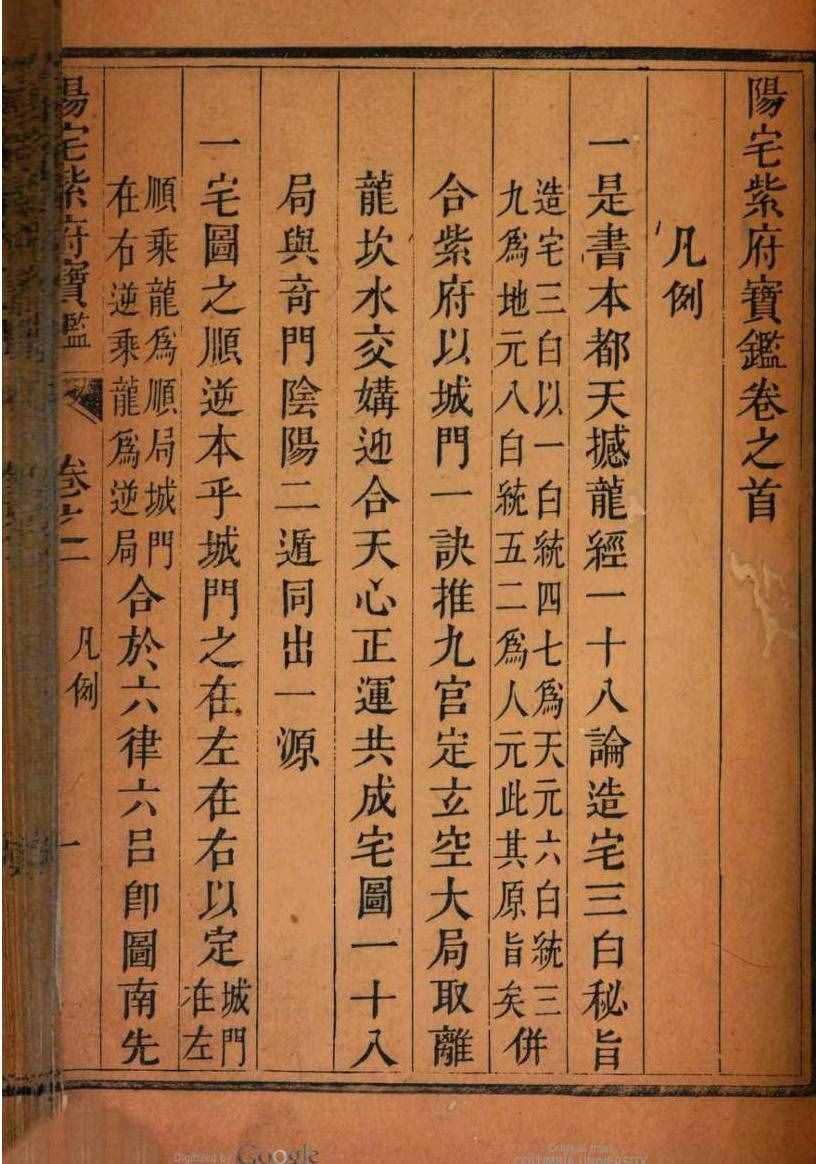 陽宅紫府寶鑑卷之首
凡例
一是書本都天撼龍經一十八論造宅三白秘旨
造宅三白以一白統四七爲天元六白統三
九爲地元八白統五二爲人元此其原旨矣併
合紫府以城門一訣推九宮定玄空大局取離
龍坎水交媾迎合天心正運共成宅圖一十八
局與奇門陰陽二遁同出一源
一宅圖之順逆本乎城門之在左在右以定城門在左
順乘龍爲順局城門
在右逆乘龍爲逆局合於六律六呂卽圖南先
陽宅紫府寶鑑
卷之
凡例
一
Digitized by Google
Original from
COLUMBIA UNIVERSITY